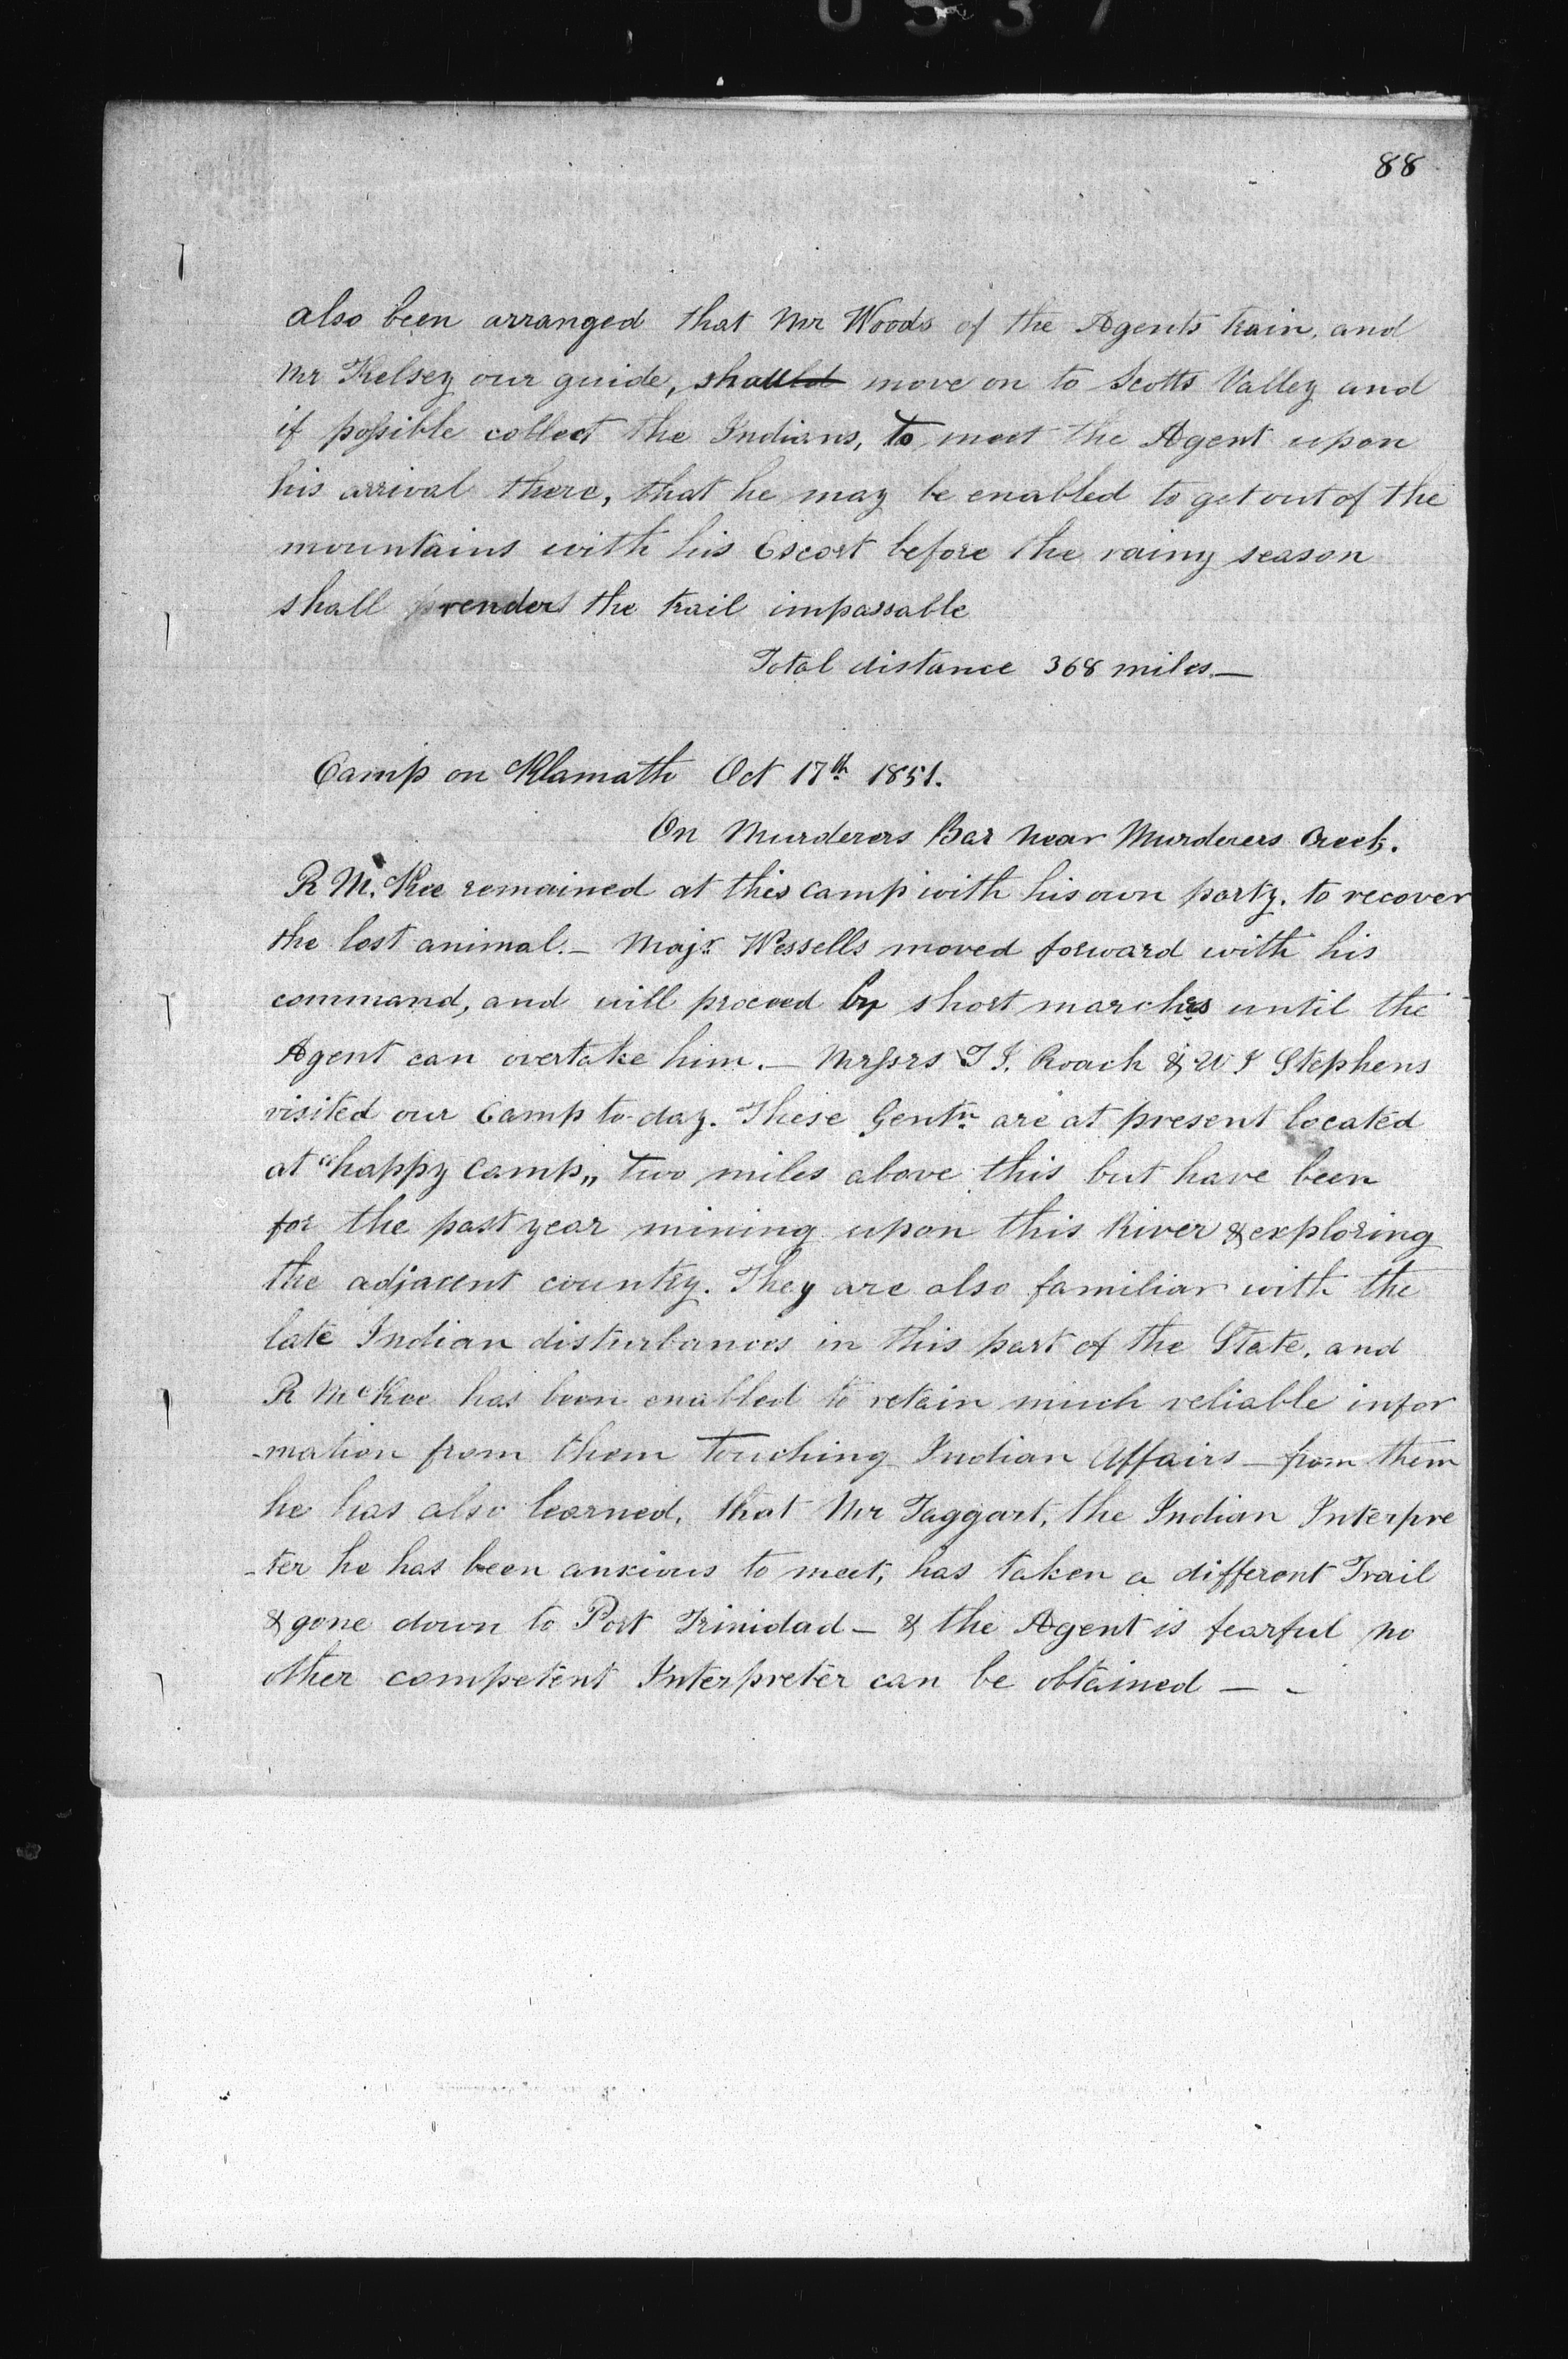 0537
88
also been arranged that Mr Woods of the Agents train, and
Mr Kelsey our guide, shall move on to Scotts Valley and
if possible collect the Indians, to meet the Agent upon
his arrival there, that he may be enabled to get out of the
mountains with his Escort before the rainy season
shall render the trail impassable
Total distance 368 miles.—
Camp on Klamath Oct 17th 1851.
On Murderers Bar near Murderers Creek.
R McKee remained at this camp with his own party. to recover
the lost animal.— Majr. Wessells moved forward with his
command, and will proceed by short marches until the
Agent can overtake him.— Messrs T J. Roach & W J Stephens
visited our Camp to-day. These Gentn. are at present located
at "happy camp„ two miles above this but have been
for the past year mining upon this River & exploring
the adjacent country. They are also familiar with the
late Indian disturbances in this part of the State, and
R McKee has been enabled to retain much reliable infor
-mation from them touching Indian Affairs — from them
he has also learned, that Mr Taggart, the Indian Interpre
-ter he has been anxious to meet, has taken a different Trail
& gone down to Port Trinidad — & the Agent is fearful no
other competent Interpreter can be obtained — -